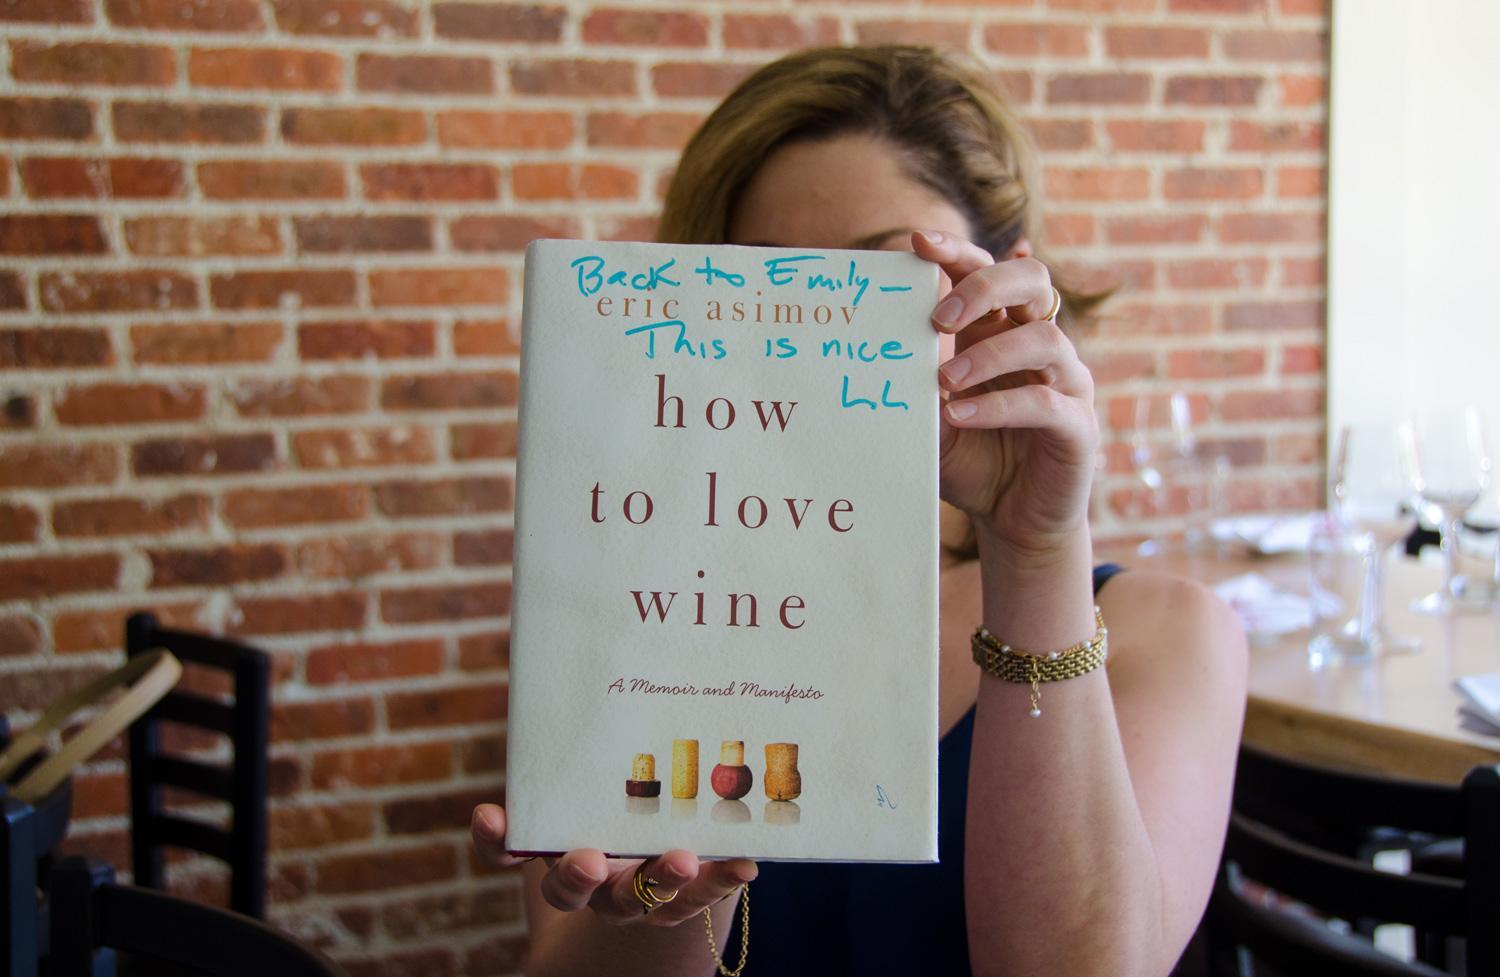 Back to Emily—
eric asimov
This is nice
LL
how
to love
wine
A Memoir and Manifesto